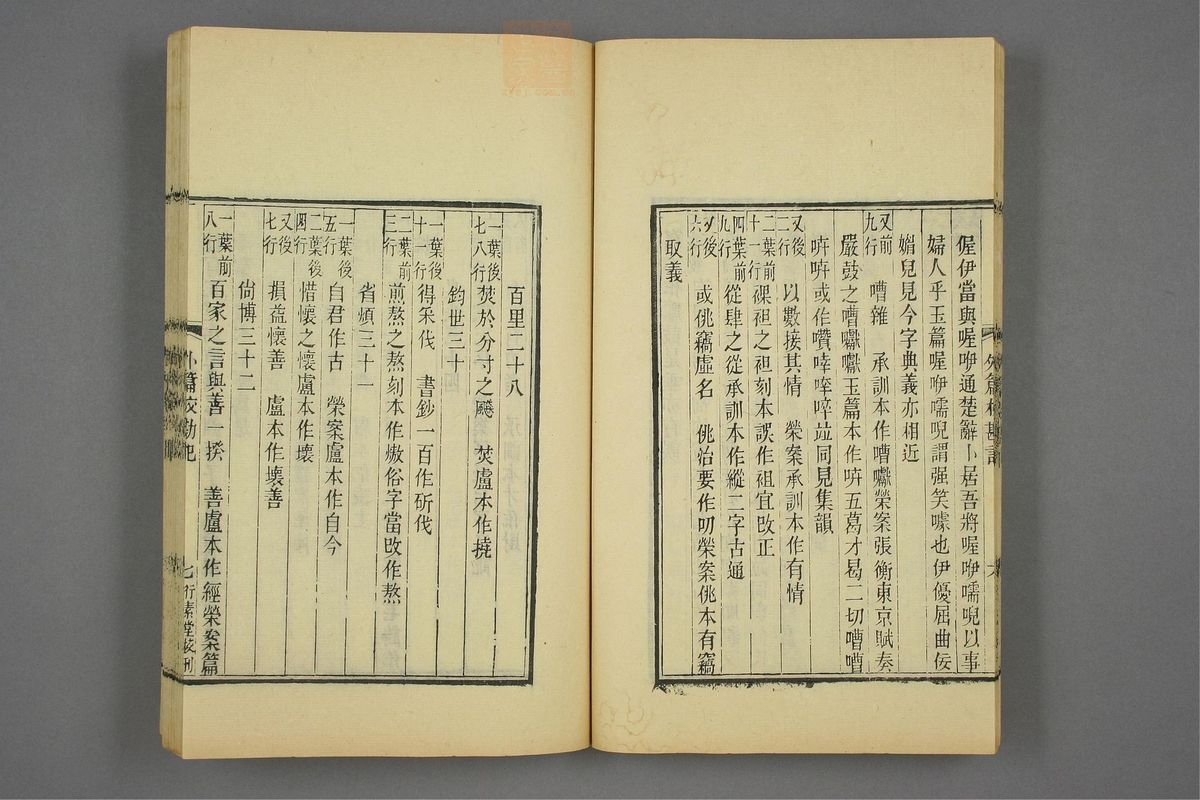 偓伊當與喔咿通楚辭卜居吾將喔咿嚅唲以事
婦人乎玉篇喔咿嚅唲謂强笑噱也伊優屈曲佞
媚皃見今字典義亦相近
又前九行 嘈雜 承訓本作嘈囐榮案張衡東京賦奏
嚴鼓之嘈囐囐玉篇本作㖕五葛才曷二切嘈嘈
㖕㖕或作囋㖕啐啐竝同見集韻
又後二行 以數接其情 榮案承訓本作有情
二葉前十一行 祼袒之袒刻本誤作祖宜改正
四葉前九行 從肆之從承訓本作縱二字古通
又後六行 或佻竊虛名 佻治要作叨榮案佻本有竊
取義
外篇校勘記
六
百里二十八
一葉後七八行 焚於分寸之飈 焚盧本作撓
鈞世三十
一葉後十一行 得采伐 書鈔一百作斫伐
二葉前三行 煎熬之熬刻本作熬俗字當改作熬
省煩三十一
一葉後五行 自君作古 榮案盧本作自今
二葉後四行 惜懷之懷盧本作壞
又後七行 損益懷善 盧本作壞善
尙博三十二
一葉前八行 百家之言與善一揆 善盧本作經榮案篇
外篇校勘記
七
行素堂校刊